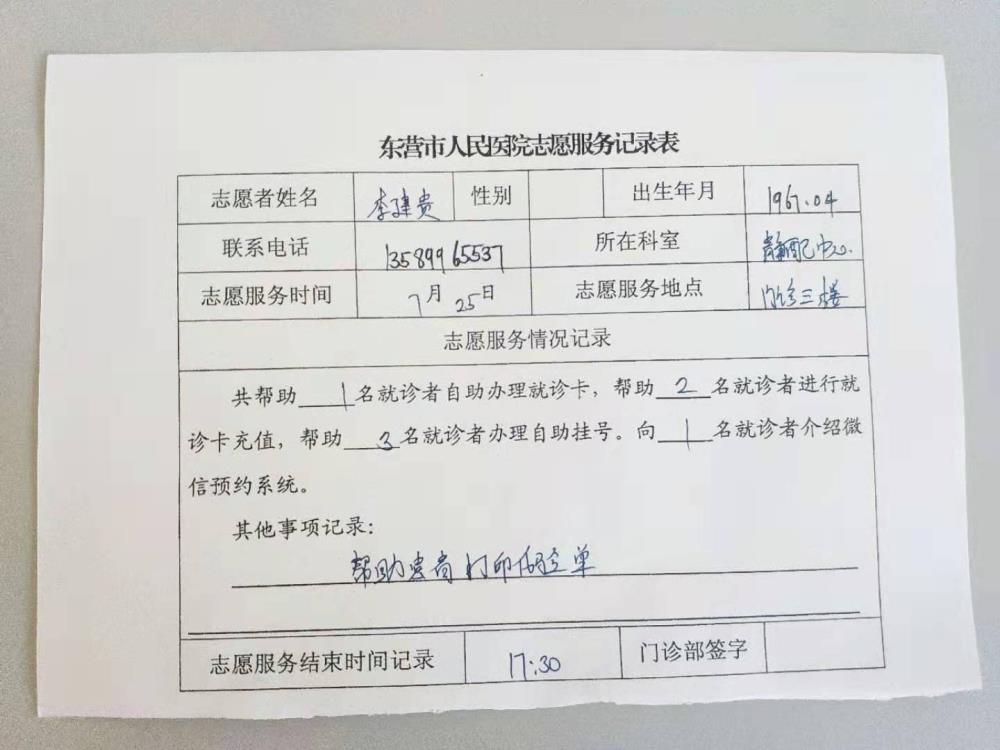 东营市人民医院志愿服务记录表
志愿者姓名 李建贵 性别 出生年月 1967.04
联系电话 13589965537 所在科室 静配中心.
志愿服务时间 7月25日 志愿服务地点 门诊三楼
志愿服务情况记录
共帮助 1 名就诊者自助办理就诊卡，帮助 2 名就诊者进行就
诊卡充值，帮助 3 名就诊者办理自助挂号。向 1 名就诊者介绍微
信预约系统。
其他事项记录：
帮助患者打印化验单
志愿服务结束时间记录 17:30 门诊部签字